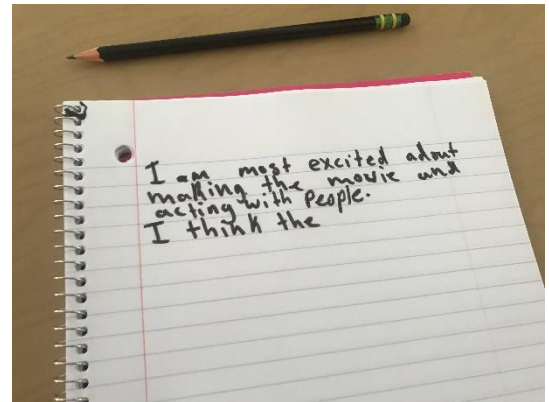 I am most excited adout
making the movie and
acting with people.
I think the